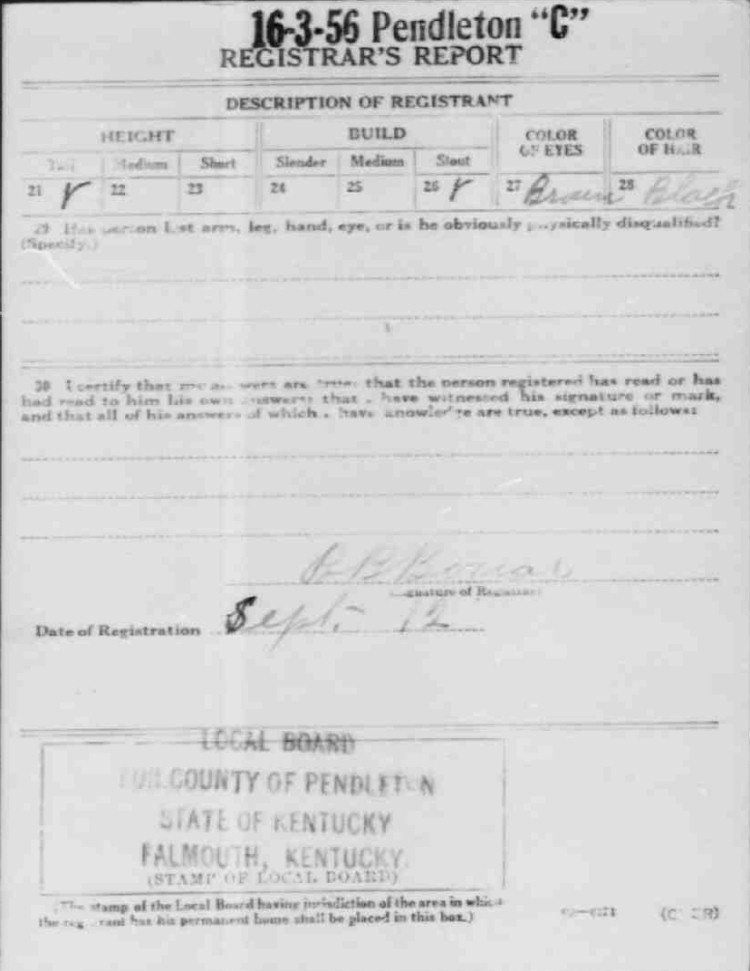 16-3-56 Pendleton "C"
REGISTRAR'S REPORT
DESCRIPTION OF REGISTRANT
HEIGHT BUILD COLOR OF EYES COLOR OF HAIR
Tall Medium Short Slender Medium Stout
21 ✓ 22 23 24 25 26 ✓ 27 Brown 28 Black
29 Has person lost arm, leg, hand, eye, or is he obviously physically disqualified?
(Specify.)
30 I certify that my answers are true; that the person registered has read or has
had read to him his own answers; that I have witnessed his signature or mark,
and that all of his answers of which I have knowledge are true, except as follows:
B B
Signature of Registrar
Date of Registration Sept. 12
LOCAL BOARD
FOR COUNTY OF PENDLETON
STATE OF KENTUCKY
FALMOUTH, KENTUCKY.
(STAMP OF LOCAL BOARD)
(The stamp of the Local Board having jurisdiction of the area in which
the registrant has his permanent home shall be placed in this box.)
(OVER)